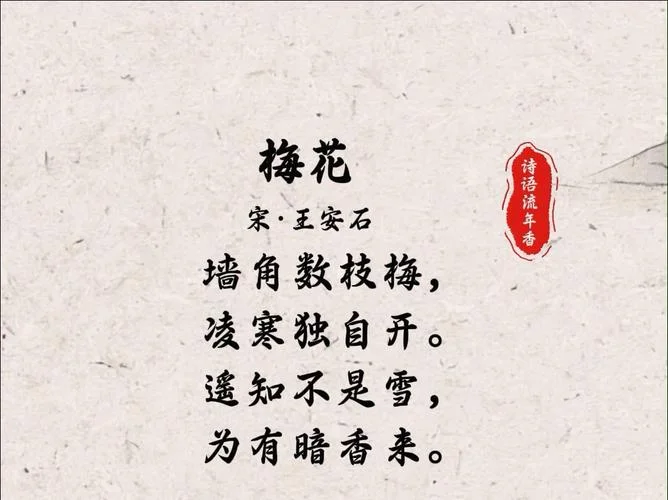 梅花
宋·王安石
墙角数枝梅，
凌寒独自开。
遥知不是雪，
为有暗香来。
诗语流年香